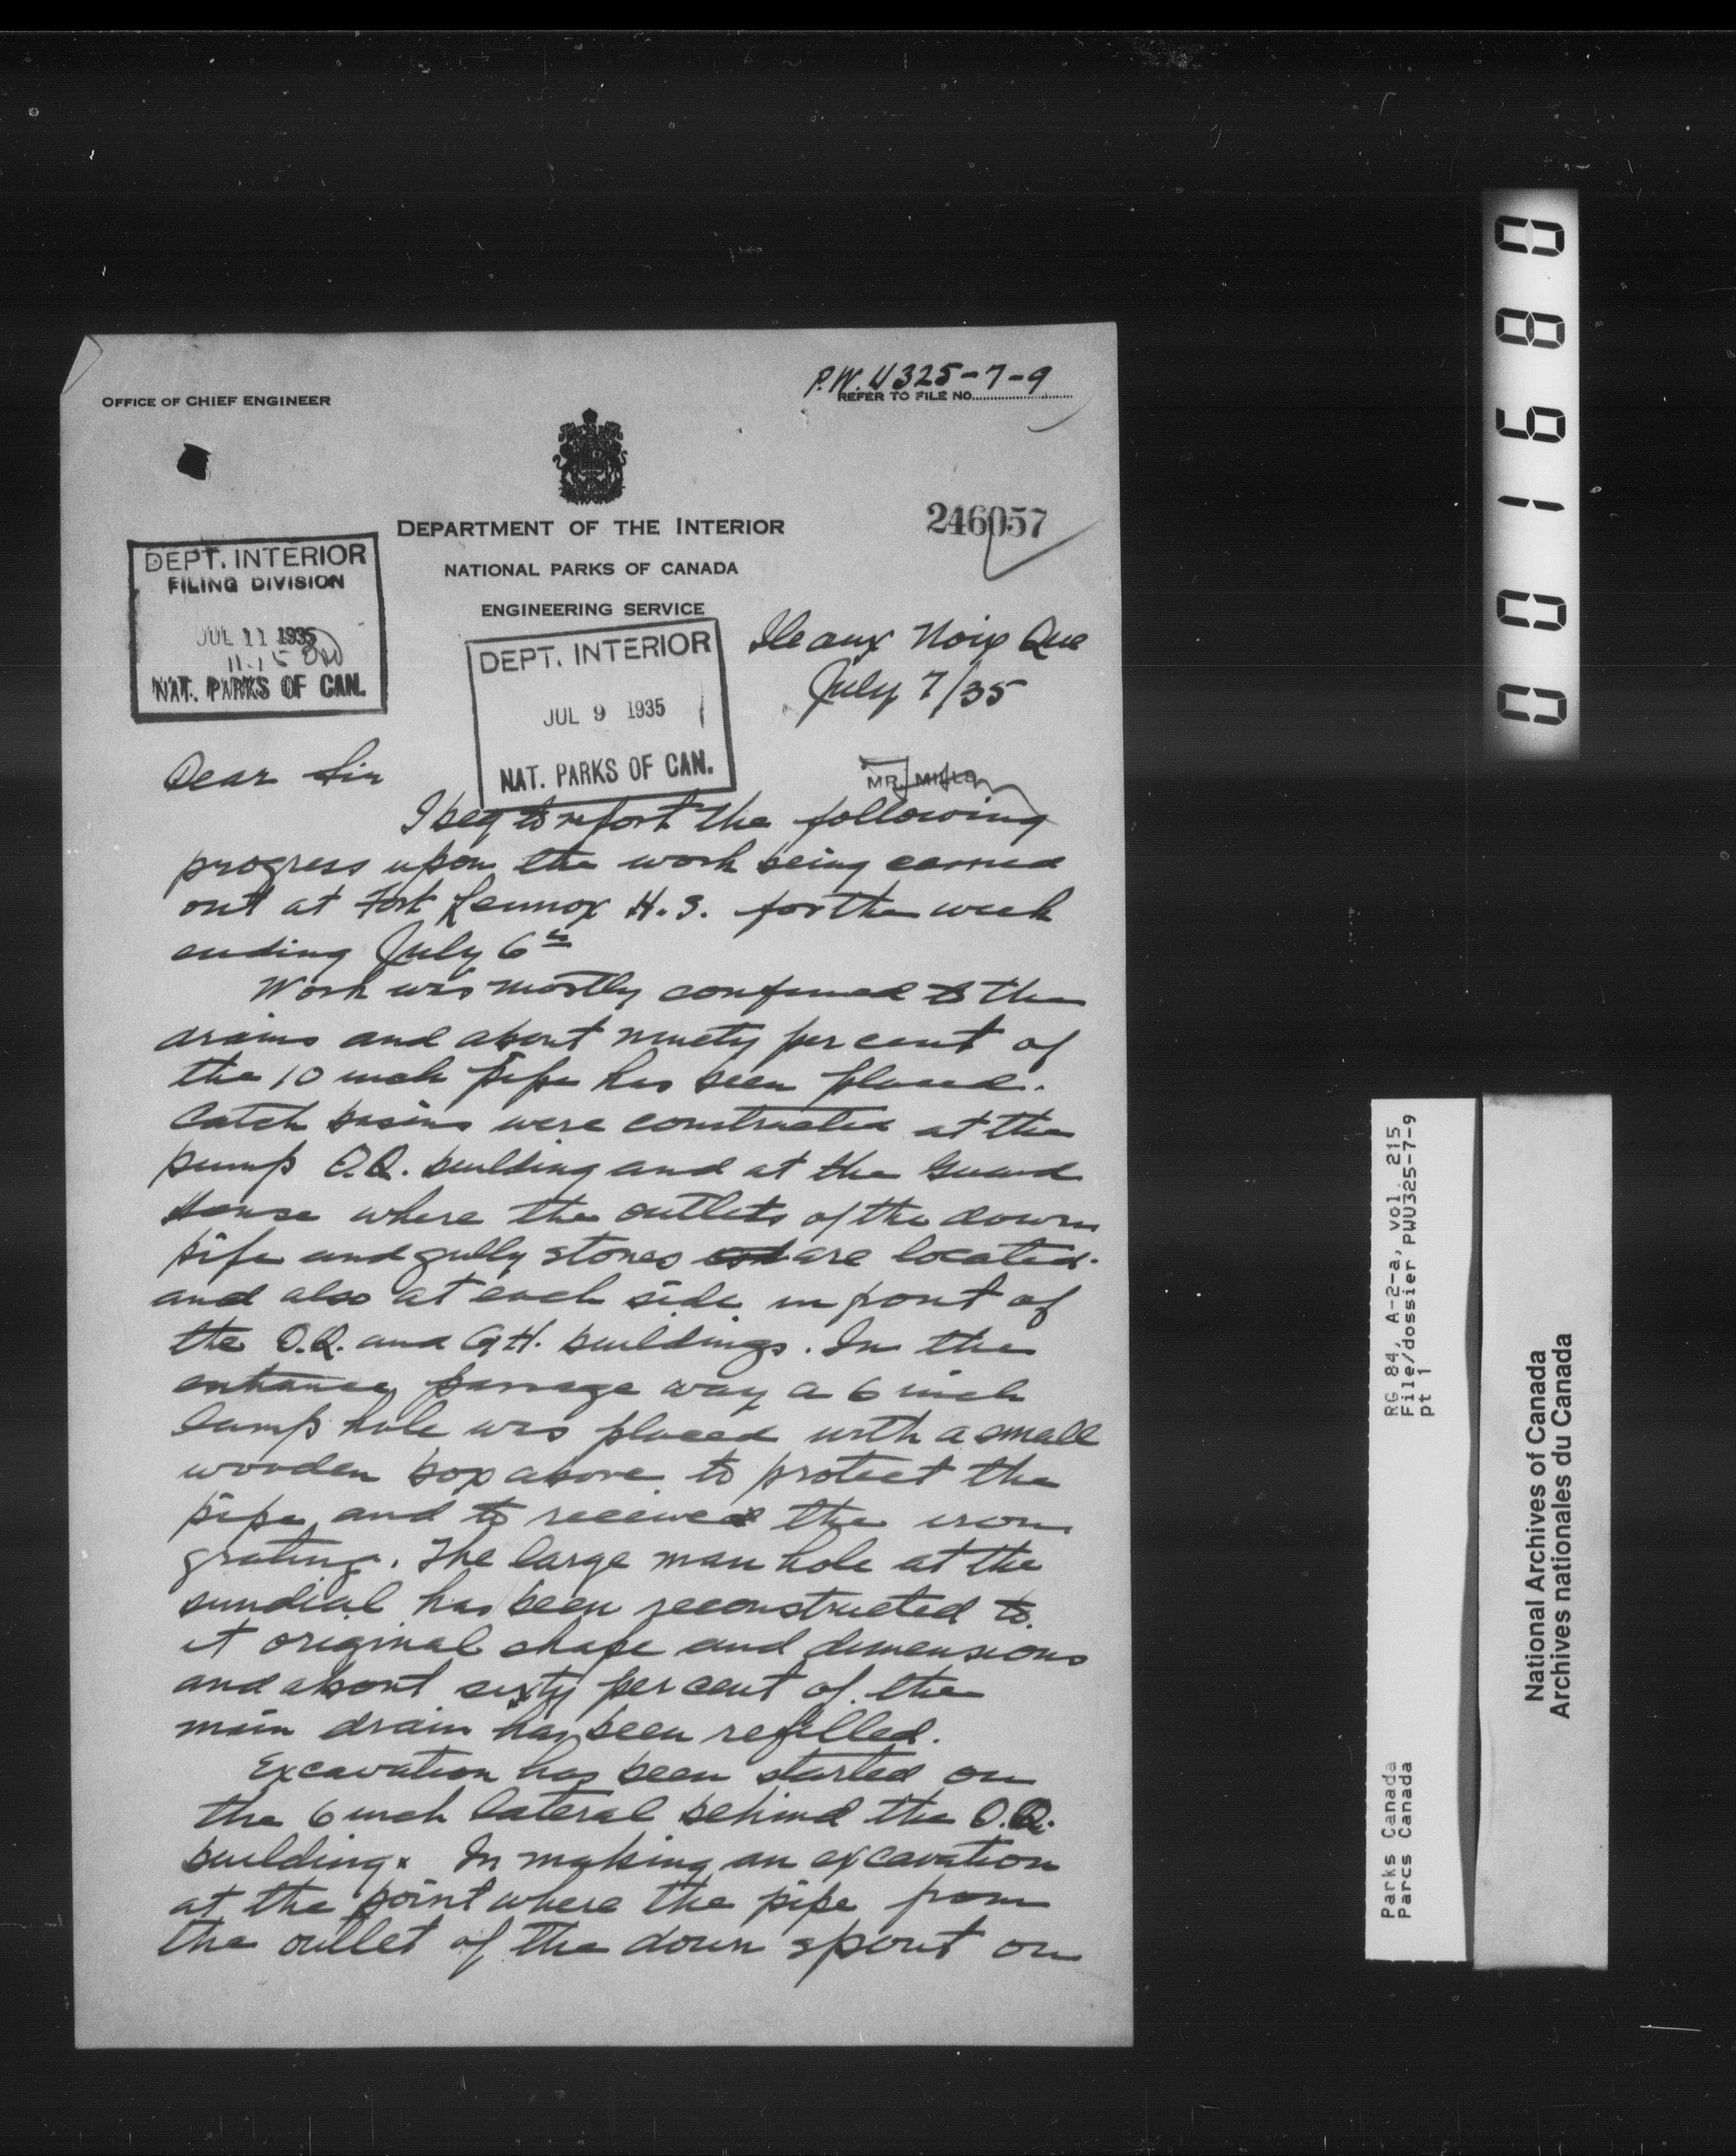 P.W.U 325-7-9
OFFICE OF CHIEF ENGINEER
REFER TO FILE NO.
DEPARTMENT OF THE INTERIOR
246057
NATIONAL PARKS OF CANADA
ENGINEERING SERVICE
DEPT. INTERIOR
FILING DIVISION
JUL 11 1935
11.15
NAT. PARKS OF CAN.
DEPT. INTERIOR
JUL 9 1935
NAT. PARKS OF CAN.
Ile aux Noix Que
July 7/35
MR. MILLS
Dear Sir
I beg to report the following
progress upon the work being carried
out at Fort Lennox H.S. for the week
ending July 6th
Work was mostly confined to the
drains and about ninety per cent of
the 10 inch pipe has been placed.
Catch basins were constructed at the
pump O.Q. building and at the Guard
House where the outlets of the down
pipe and gully stones are located.
and also at each side in front of
the O.Q. and G.H. buildings. In the
entrance passage way a 6 inch
lamp hole was placed with a small
wooden box above to protect the
pipe and to receive the iron
grating. The large man hole at the
sundial has been reconstructed to
it original shape and dimensions
and about sixty per cent of the
main drain has been refilled.
Excavation has been started on
the 6 inch lateral behind the O.Q.
building. In making an excavation
at the point where the pipe from
the outlet of the down spout on
001680
RG 84, A-2-a, vol. 215
File/dossier PWU325-7-9
pt 1
Parks Canada
Parcs Canada
National Archives of Canada
Archives nationales du Canada